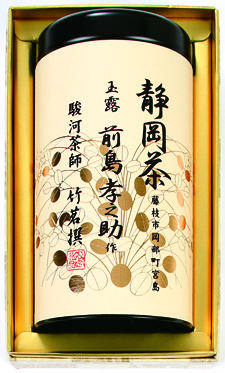 静岡茶
藤枝市岡部町宮島
玉露 前島孝之助作
駿河茶師 竹茗撰